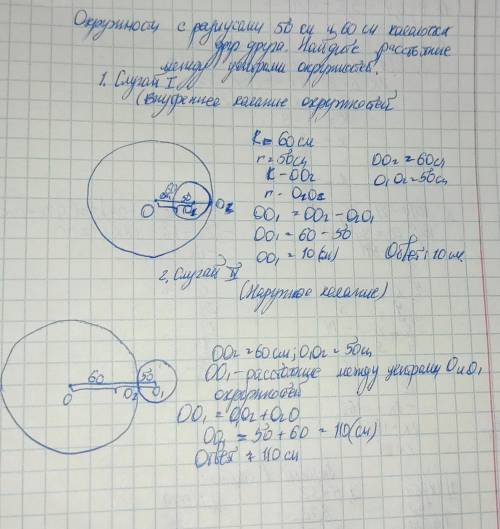 Окружности с радиусами 50 см и 60 см касаются
друг друга. Найдите расстояние
между центрами окружностей.
1. Случай I
(Внутреннее касание окружностей
R = 60 см
r = 50 см
OO₂ = 60 см
R - OO₂
O₁O₂ = 50 см
r - O₁O₂
OO₁ = OO₂ - O₂O₁
OO₁ = 60 - 50
OO₁ = 10 (см)
Ответ: 10 см
60
50
O
O₁
O₂
2. Случай II
(Наружное касание)
60
50
O
O₂
O₁
OO₂ = 60 см; O₁O₂ = 50 см
OO₁ - расстояние между центрами O и O₁
окружностей
OO₁ = O₁O₂ + O₂O
OO₁ = 50 + 60 = 110 (см)
Ответ: 110 см